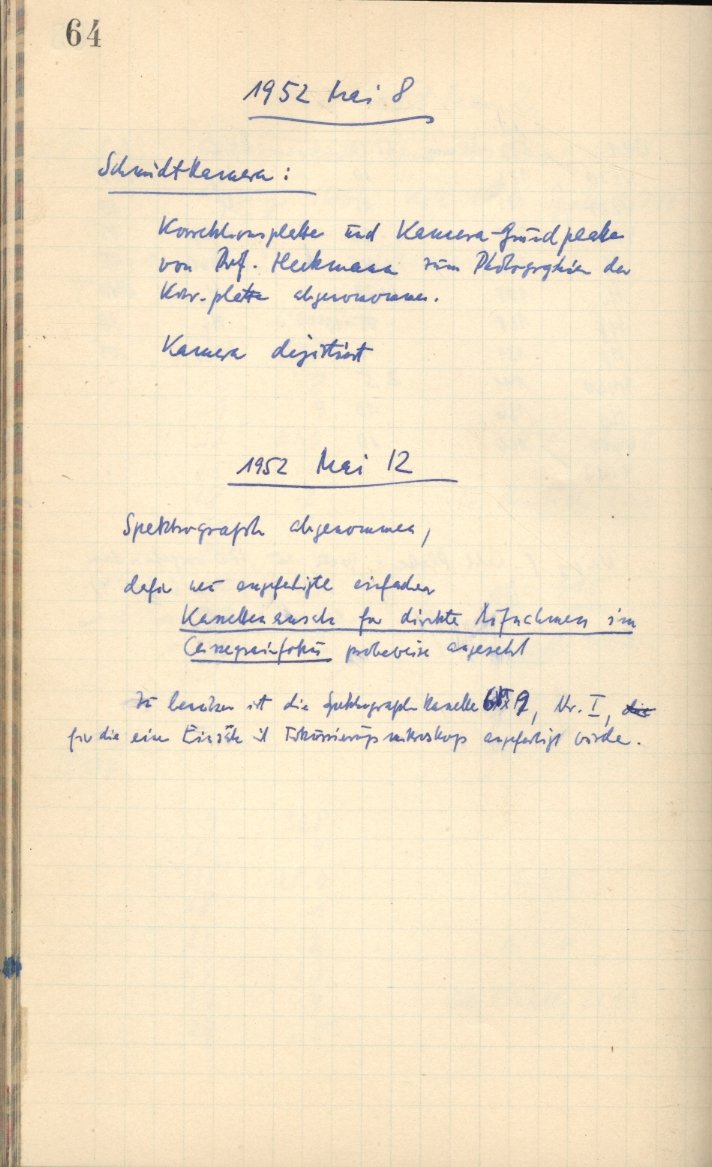 64
1952 Mai 8
Schmidtkamera:
Korrektionsplatte und Kamera-Grundplatte
von Prof. Heckmann zum Photographieren der
Korr.-platte abgenommen.
Kamera
1952 Mai 12
Spektrograph abgenommen,
dafür neu angefertigte einfache
für direkte Aufnahmen im
Cassegrainfokus probeweise angesetzt
Zu benützen ist die Spektrograph Kassette 6X9, Nr. I, die
für die ein Einsatz mit Fokussierungsmikroskop angefertigt wurde.